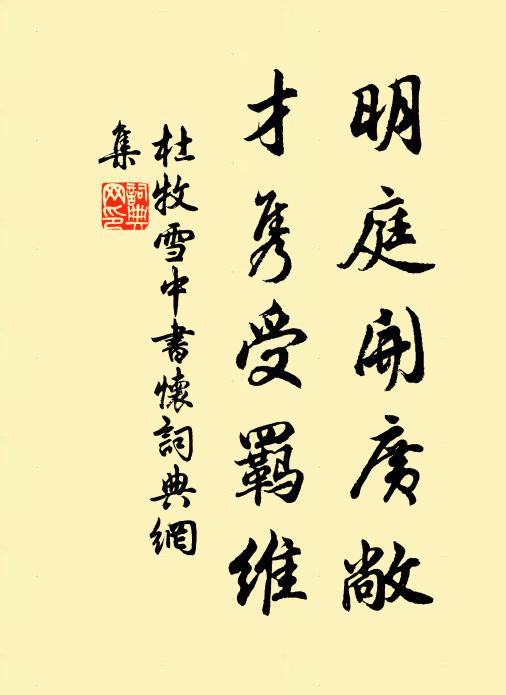 明庭開廣敞
才雋受羈維
杜牧雪中書懷詞典網
集
詞典
网印